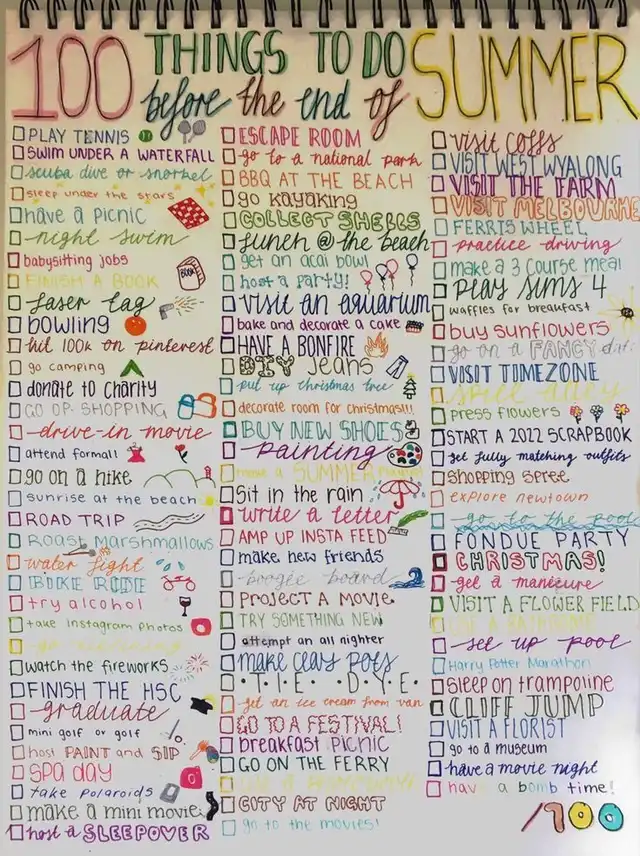 100 THINGS TO DO
before the end of SUMMER
PLAY TENNIS
SWIM UNDER A WATERFALL
scuba dive or snorkel
sleep under the stars
have a picnic
night swim
babysitting jobs
FINISH A BOOK
laser tag
bowling
hit 100k on pinterest
go camping
donate to charity
GO OP-SHOPPING
drive-in movie
attend formal
go on a hike
sunrise at the beach
ROAD TRIP
ROAST MARSHMALLOWS
water fight
BIKE RIDE
try alcohol
take instagram photos
watch the fireworks
FINISH THE HSC
graduate
mini golf or golf
host PAINT and SIP
SPA DAY
take polaroids
make a mini movie
host a SLEEPOVER
ESCAPE ROOM
go to a national park
BBQ AT THE BEACH
go kayaking
COLLECT SHELLS
lunch @ the beach
get an acai bowl
host a party!
visit an aquarium
bake and decorate a cake
HAVE A BONFIRE
DIY jeans
put up christmas tree
decorate room for christmas!!!
BUY NEW SHOES
painting
SUMMER
Sit in the rain
write a letter
AMP UP INSTA FEED
make new friends
boogie board
PROJECT A MOVIE
TRY SOMETHING NEW
attempt an all nighter
make clay pots
TIE DYE
get an ice cream from van
GO TO A FESTIVAL!
breakfast picnic
GO ON THE FERRY
CITY AT NIGHT
go to the movies!
visit coffs
VISIT WEST WYALONG
VISIT THE FARM
VISIT MELBOURNE
FERRIS WHEEL
practice driving
make a 3 course meal
PLAY SIMS 4
WAFFLES FOR BREAKFAST
buy sunflowers
go on a FANCY date
VISIT TIMEZONE
PRESS FLOWERS
START A 2022 SCRAPBOOK
get fully matching outfits
shopping spree
explore newtown
go to the pool
FONDUE PARTY
CHRISTMAS!
get a manicure
VISIT A FLOWER FIELD
set up pool
Harry Potter Marathon
sleep on trampoline
CLIFF JUMP
VISIT A FLORIST
go to a museum
have a movie night
have a bomb time!
/100